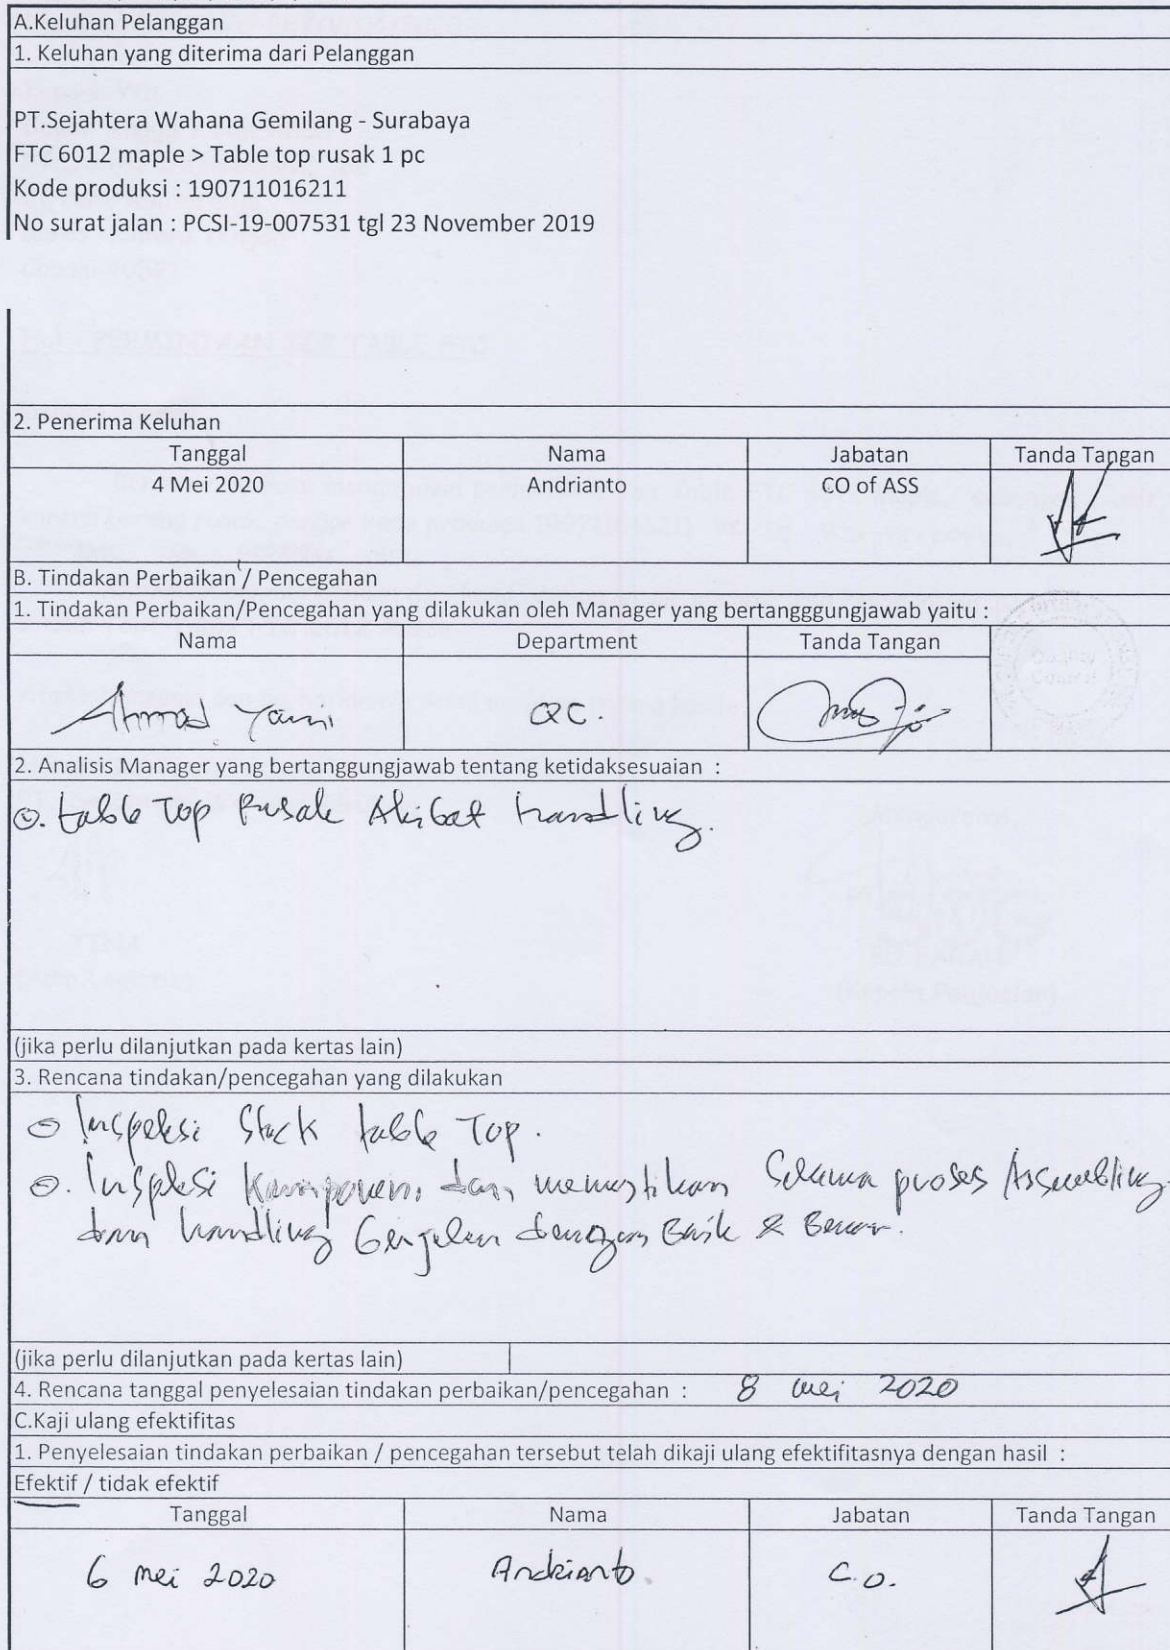 A.Keluhan Pelanggan
1. Keluhan yang diterima dari Pelanggan
PT.Sejahtera Wahana Gemilang - Surabaya
FTC 6012 maple > Table top rusak 1 pc
Kode produksi : 190711016211
No surat jalan : PCSI-19-007531 tgl 23 November 2019
2. Penerima Keluhan
Tanggal Nama Jabatan Tanda Tangan
4 Mei 2020 Andrianto CO of ASS
B. Tindakan Perbaikan / Pencegahan
1. Tindakan Perbaikan/Pencegahan yang dilakukan oleh Manager yang bertangggungjawab yaitu :
Nama Department Tanda Tangan
Quality
Control
Ahmad Yani QC.
2. Analisis Manager yang bertanggungjawab tentang ketidaksesuaian :
table Top Rusak Akibat handling.
(jika perlu dilanjutkan pada kertas lain)
3. Rencana tindakan/pencegahan yang dilakukan
Inspeksi Stock table Top.
Inspeksi Komponen dan memastikan Selama proses Assembling
dan handling berjalan dengan Baik & Benar.
(jika perlu dilanjutkan pada kertas lain)
4. Rencana tanggal penyelesaian tindakan perbaikan/pencegahan : 8 mei 2020
C.Kaji ulang efektifitas
1. Penyelesaian tindakan perbaikan / pencegahan tersebut telah dikaji ulang efektifitasnya dengan hasil :
Efektif / tidak efektif
Tanggal Nama Jabatan Tanda Tangan
6 mei 2020 Andrianto. C.O.